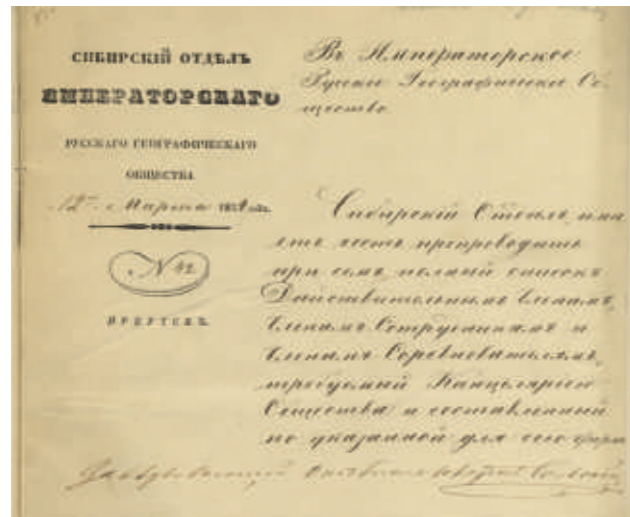 СИБИРСКІЙ ОТДѢЛЪ
ИМПЕРАТОРСКАГО
РУССКАГО ГЕОГРАФИЧЕСКАГО
ОБЩЕСТВА
12го Марта года.
№ 42
ИРКУТСКЪ.
Въ Императорское
Русское Географическое Об-
щество
Сибирскій Отдѣлъ имѣ-
етъ честь препроводить
при семъ полный списокъ
Дѣйствительнымъ Членамъ,
Членамъ Сотрудникамъ и
Членамъ Соревнователямъ,
требуемый Канцеляріею
Общества и составленный
по указанной для сего форм